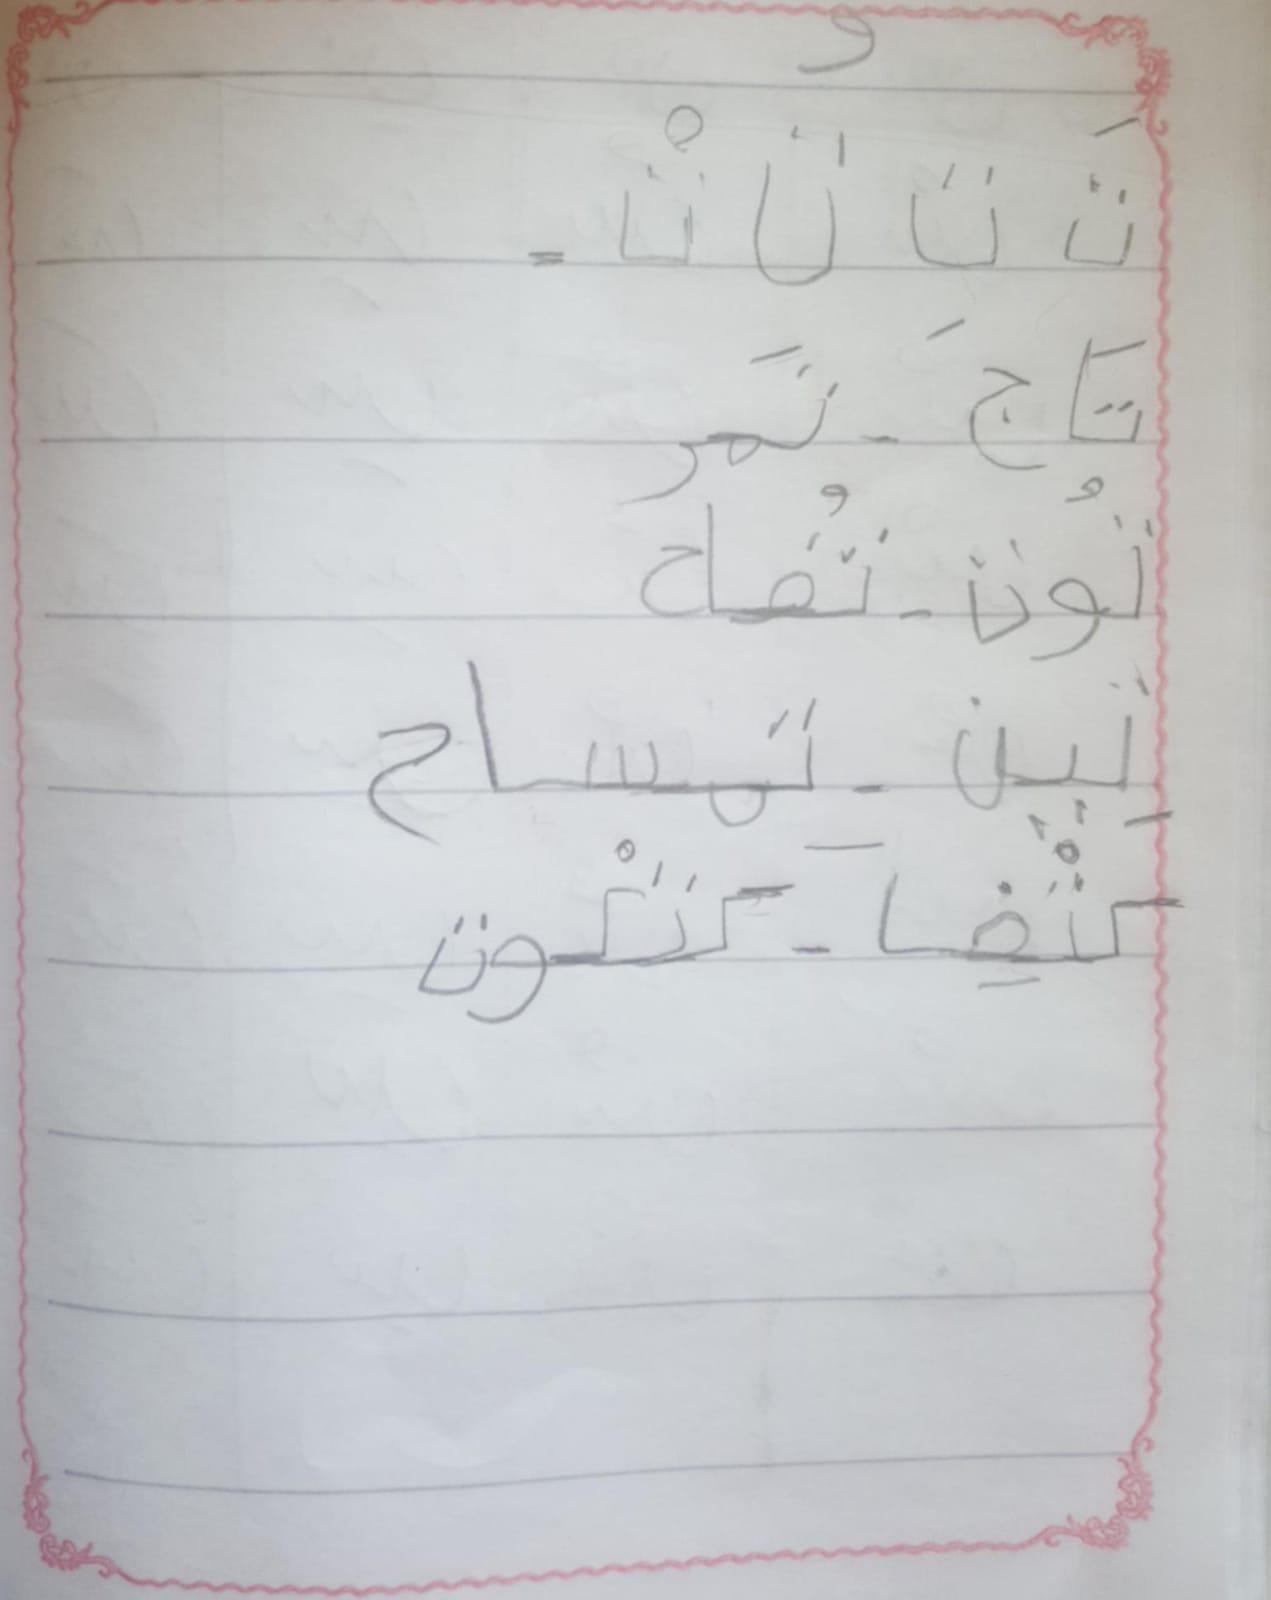 و
تَ ت ت تْ =
تَاجَ - تَمر
تُوت - تُفاح
تين - تمساح
كتْفِا - كتْكوت